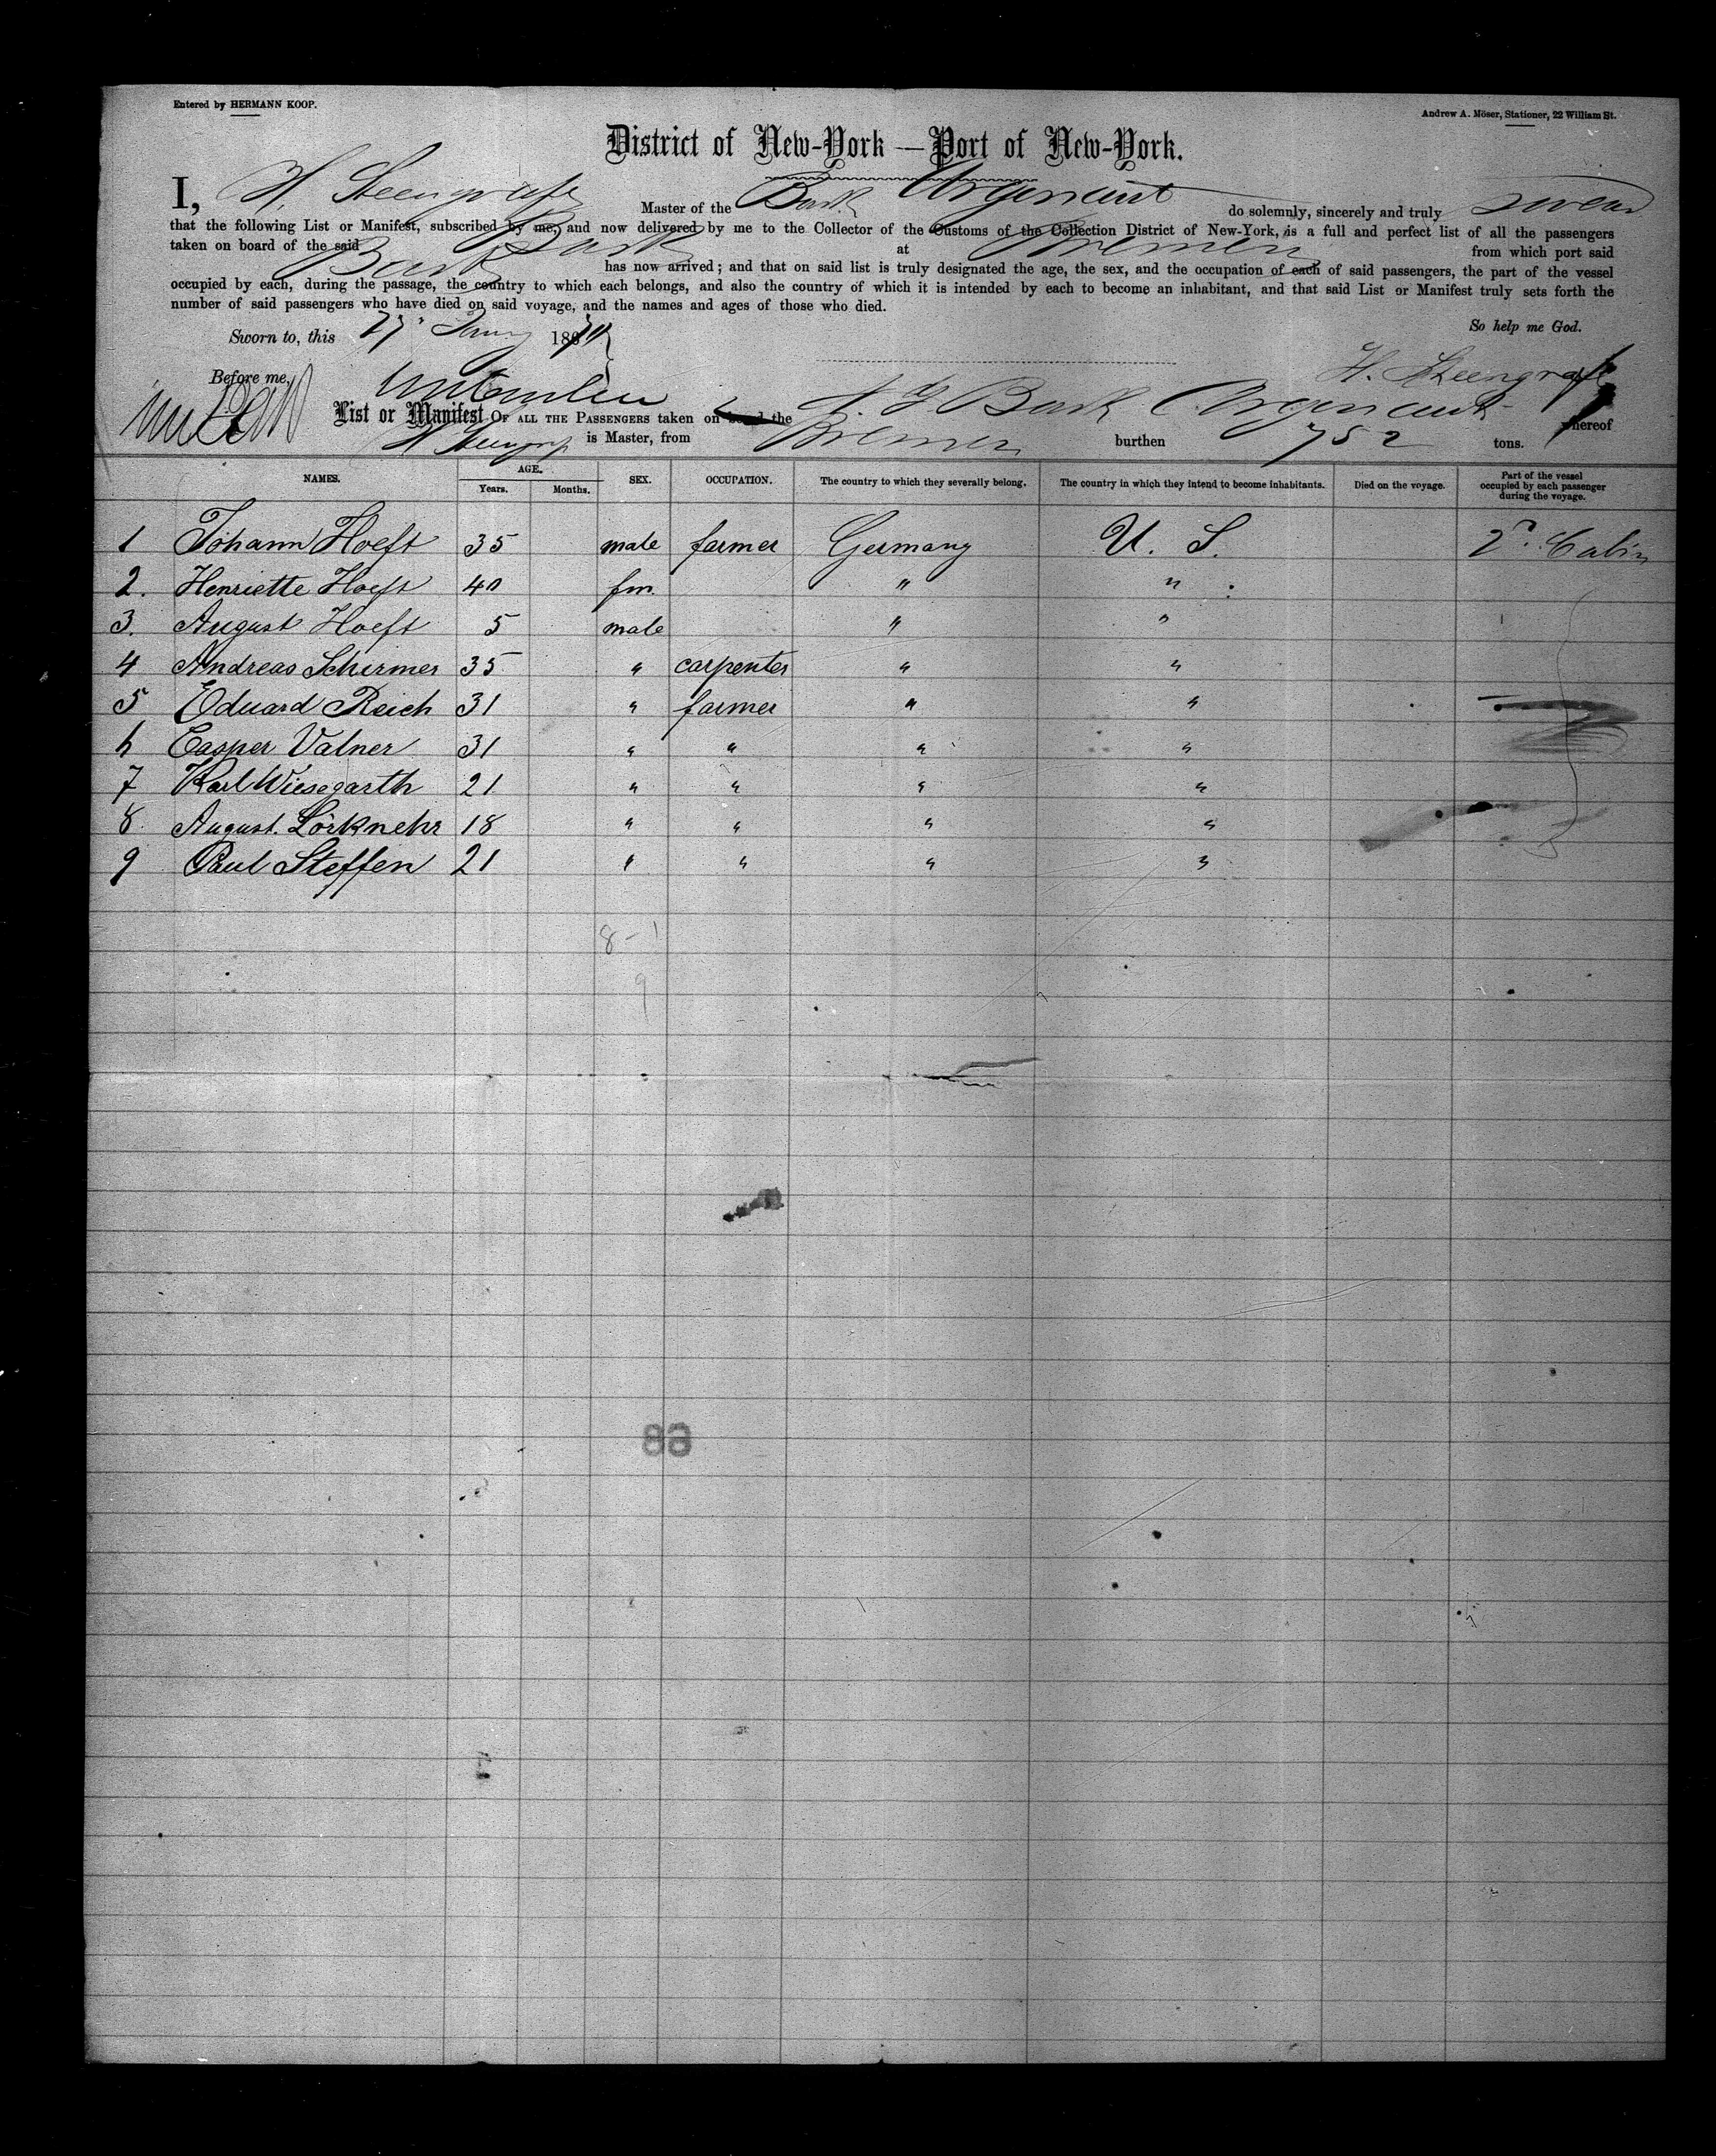 Entered by HERMANN KOOP.
Andrew A. Möser, Stationer, 22 William St.
District of New-York — Port of New-York.
I, H. Steengrafe Master of the Bark Argonaut do solemnly, sincerely and truly swear
that the following List or Manifest, subscribed by me, and now delivered by me to the Collector of the Customs of the Collection District of New-York, is a full and perfect list of all the passengers
taken on board of the said Bark at Bremen from which port said
Bark has now arrived; and that on said list is truly designated the age, the sex, and the occupation of each of said passengers, the part of the vessel
occupied by each, during the passage, the country to which each belongs, and also the country of which it is intended by each to become an inhabitant, and that said List or Manifest truly sets forth the
number of said passengers who have died on said voyage, and the names and ages of those who died.
So help me God.
Sworn to, this 27 186
H. Steengrafe
Before me,
List or Manifest OF ALL THE PASSENGERS taken on board the N. G. Bark Argonaut whereof
H Steengrafe is Master, from Bremen burthen 752 tons.
NAMES. AGE. Years. Months. SEX. OCCUPATION. The country to which they severally belong. The country in which they intend to become inhabitants. Died on the voyage. Part of the vessel occupied by each passenger during the voyage.
1 Johann Hoeft 35 male farmer Germany U. S. 2d Cabin
2. Henriette Hoeft 40 fm. " "
3. August Hoeft 5 male " "
4 Andreas Schirmer 35 " carpenter " "
5 Eduard Reich 31 " farmer " "
6 Casper Valner 31 " " " "
7 Karl Wiesegarth 21 " " " "
8. August. Lörknehr 18 " " " "
9 Paul Steffen 21 " " " "
8-1
9
68